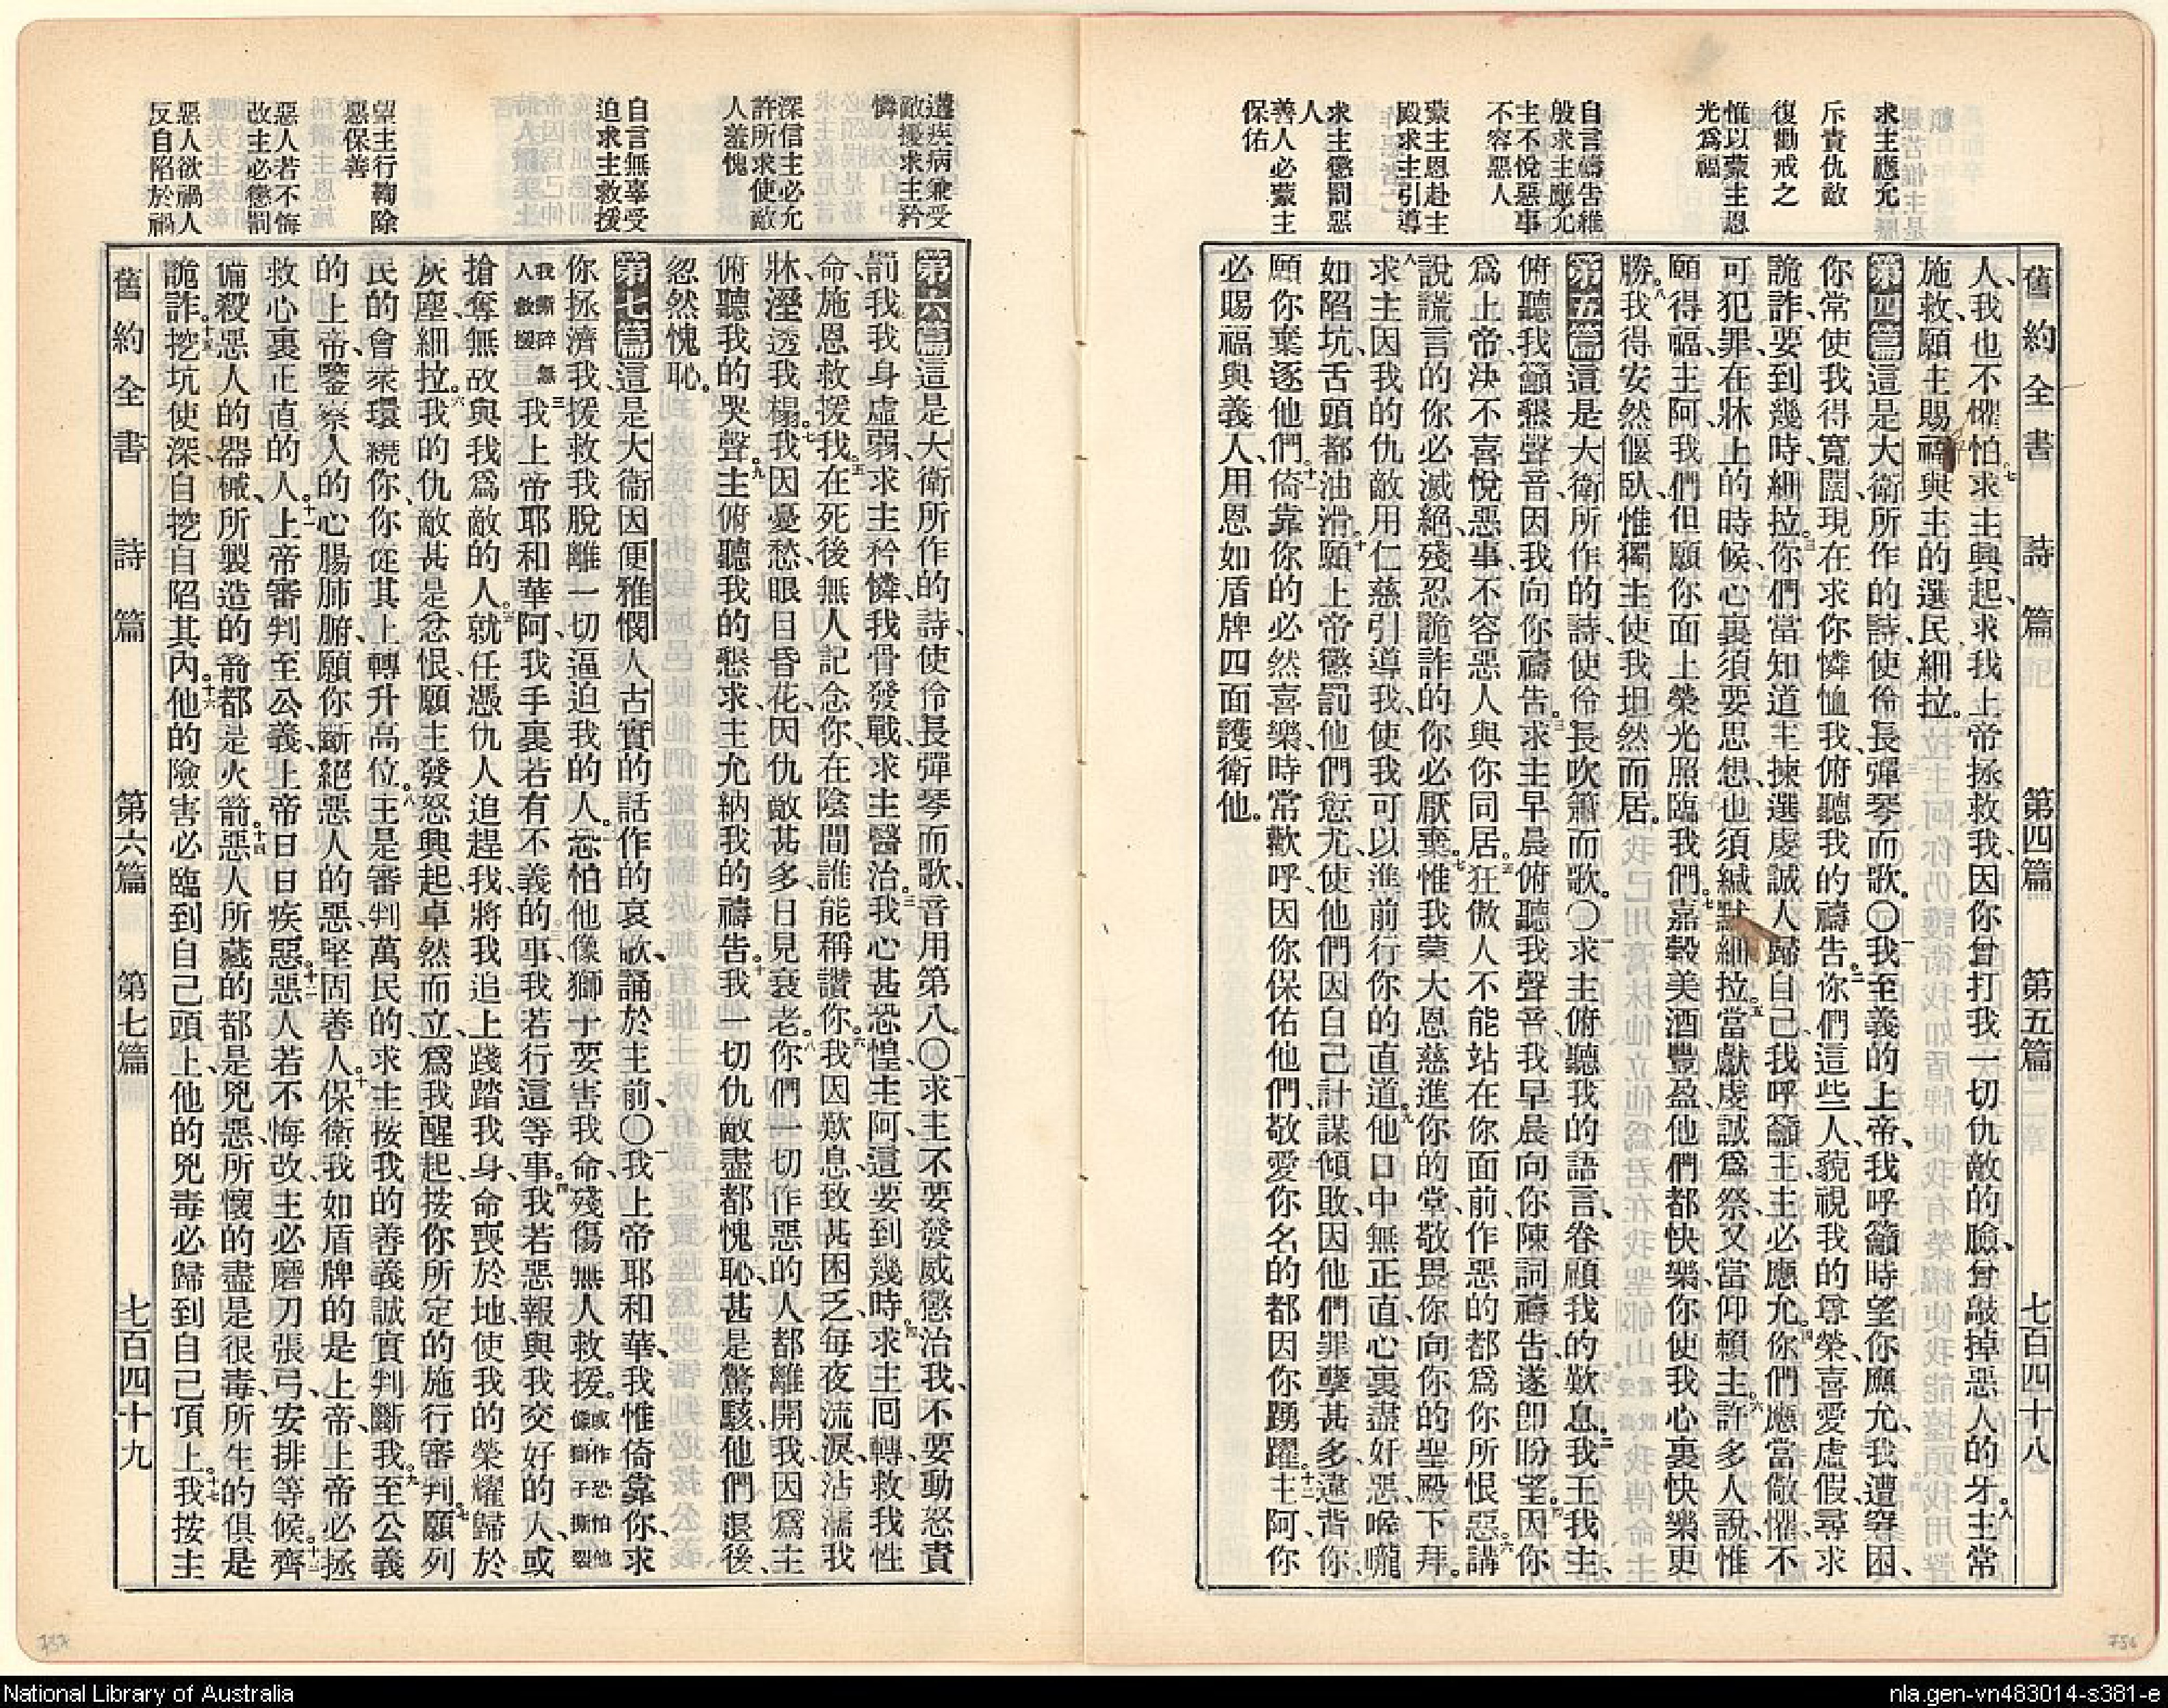 舊約全書 詩篇 第四篇 第五篇 七百四十八
求主應允
斥責仇敵
復勸戒之
惟以蒙主恩
光爲福
自言禱告維
殷求主應允
主不悅惡事
不容惡人
蒙主恩赴主
殿求主引導
求主懲罰惡
人
善人必蒙主
保佑
人、我也不懼怕。七求主興起、求我上帝拯救我、因你曾打我一切仇敵的臉、曾敲掉惡人的牙。八主常
施救、願主賜福與主的選民、細拉。
第四篇這是大衛所作的詩、使伶長彈琴而歌。〇一我至義的上帝、我呼籲時望你應允、我遭窘困、
你常使我得寬闊、現在求你憐恤我、俯聽我的禱告。二你們這些人、藐視我的尊榮、喜愛虛假、尋求
詭詐、要到幾時、細拉。三你們當知道主揀選虔誠人歸自己、我呼籲主、主必應允。四你們應當儆懼、不
可犯罪、在牀上的時候、心裏須要思想、也須緘默、細拉。五當獻虔誠爲祭、又當仰賴主。六許多人說、惟
願得福、主阿、我們但願你面上榮光照臨我們。七嘉穀美酒豐盈、他們都快樂、你使我心裏快樂更
勝。八我得安然偃臥、惟獨主使我坦然而居。
第五篇這是大衛所作的詩、使伶長吹簫而歌。〇一求主俯聽我的語言、眷顧我的歎息。二我王我主、
俯聽我籲懇聲音、因我向你禱告。三求主早晨俯聽我聲音、我早晨向你陳詞禱告、遂卽盼望。四因你
爲上帝、決不喜悅惡事、不容惡人與你同居。五狂傲人不能站在你面前、作惡的都爲你所恨惡。六講
說謊言的你必滅絕、殘忍詭詐的、你必厭棄。七惟我蒙大恩慈、進你的堂、敬畏你、向你的聖殿下拜。
八求主因我的仇敵、用仁慈引導我、使我可以進前行你的直道。九他口中無正直、心裏盡奸惡、喉嚨
如陷坑、舌頭都油滑。十願上帝懲罰他們愆尤、使他們因自己計謀傾敗、因他們罪孽甚多、違背你、
願你棄逐他們。十一倚靠你的必然喜樂、時常歡呼、因你保佑他們、敬愛你名的都因你踴躍。十二主阿、你
必賜福與義人、用恩如盾牌四面護衛他。
遘疾病兼受
敵擾求主矜
憐
深信主必允
許所求使敵
人羞愧
自言無辜受
迫求主救援
望主行鞫除
惡保善
惡人若不悔
改主必懲罰
惡人欲禍人
反自陷於禍
第六篇這是大衛所作的詩、使伶長彈琴而歌、音用第八。〇一求主不要發威懲治我、不要動怒責
罰我。二我身虛弱、求主矜憐、我骨發戰、求主醫治。三我心甚恐惶、主阿、這要到幾時。四求主囘轉救我性
命、施恩救援我。五在死後無人記念你、在陰間誰能稱讚你。六我因歎息、致甚困乏、每夜流淚、沾濡我
牀、溼透我榻。七我因憂愁、眼目昏花、因仇敵甚多、日見衰老。八你們一切作惡的人都離開我、因爲主
俯聽我的哭聲。九主俯聽我的懇求、主允納我的禱告。十我一切仇敵盡都愧恥、甚是驚駭、他們退後、
忽然愧恥。
第七篇這是大衞因便雅憫人古實的話作的哀歌、誦於主前、〇一我上帝耶和華、我惟倚靠你、求
你拯濟我、援救我脫離一切逼迫我的人。二恐怕他像獅子要害我命、殘傷無人救援。或作恐怕他像獅子撕裂
我撕碎無人救援三我上帝耶和華阿、我手裏若有不義的事、我若行這等事。四我若惡報與我交好的人、或
搶奪無故與我爲敵的人。五就任憑仇人迫趕我、將我追上、踐踏我身、命喪於地、使我的榮耀歸於
灰塵、細拉。六我的仇敵甚是忿恨、願主發怒興起、卓然而立、爲我醒起、按你所定的施行審判。七願列
民的會衆環繞你、你從其上轉升高位。八主是審判萬民的、求主按我的善義誠實判斷我。九至公義
的上帝、鑒察人的心腸肺腑、願你斷絕惡人的惡、堅固善人。十保衛我如盾牌的是上帝、上帝必拯
救心裏正直的人。十一上帝審判至公義、上帝日日疾惡惡人。十二若不悔改、主必磨刀張弓、安排等候。十三齊
備殺惡人的器械、所製造的箭、都是火箭。十四惡人所藏的都是兇惡、所懷的盡是很毒、所生的俱是
詭詐。十五挖坑使深、自挖自陷其內。十六他的險害必臨到自己頭上、他的兇毒必歸到自己項上。十七我按主
舊約全書 詩篇 第六篇 第七篇 七百四十九
737
736
National Library of Australia
nla.gen-vn483014-s381-e